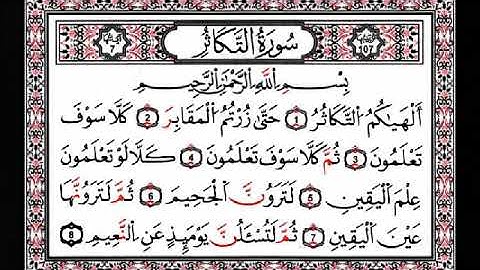 107 سُورَةُ التَّكَاثُر 7
بِسْمِ اللَّهِ الرَّحْمَٰنِ الرَّحِيمِ
أَلْهَىٰكُمُ التَّكَاثُرُ 1 حَتَّىٰ زُرْتُمُ الْمَقَابِرَ 2 كَلَّا سَوْفَ
تَعْلَمُونَ 3 ثُمَّ كَلَّا سَوْفَ تَعْلَمُونَ 4 كَلَّا لَوْ تَعْلَمُونَ
عِلْمَ الْيَقِينِ 5 لَتَرَوُنَّ الْجَحِيمَ 6 ثُمَّ لَتَرَوُنَّهَا
عَيْنَ الْيَقِينِ 7 ثُمَّ لَتُسْـَٔلُنَّ يَوْمَئِذٍ عَنِ النَّعِيمِ 8